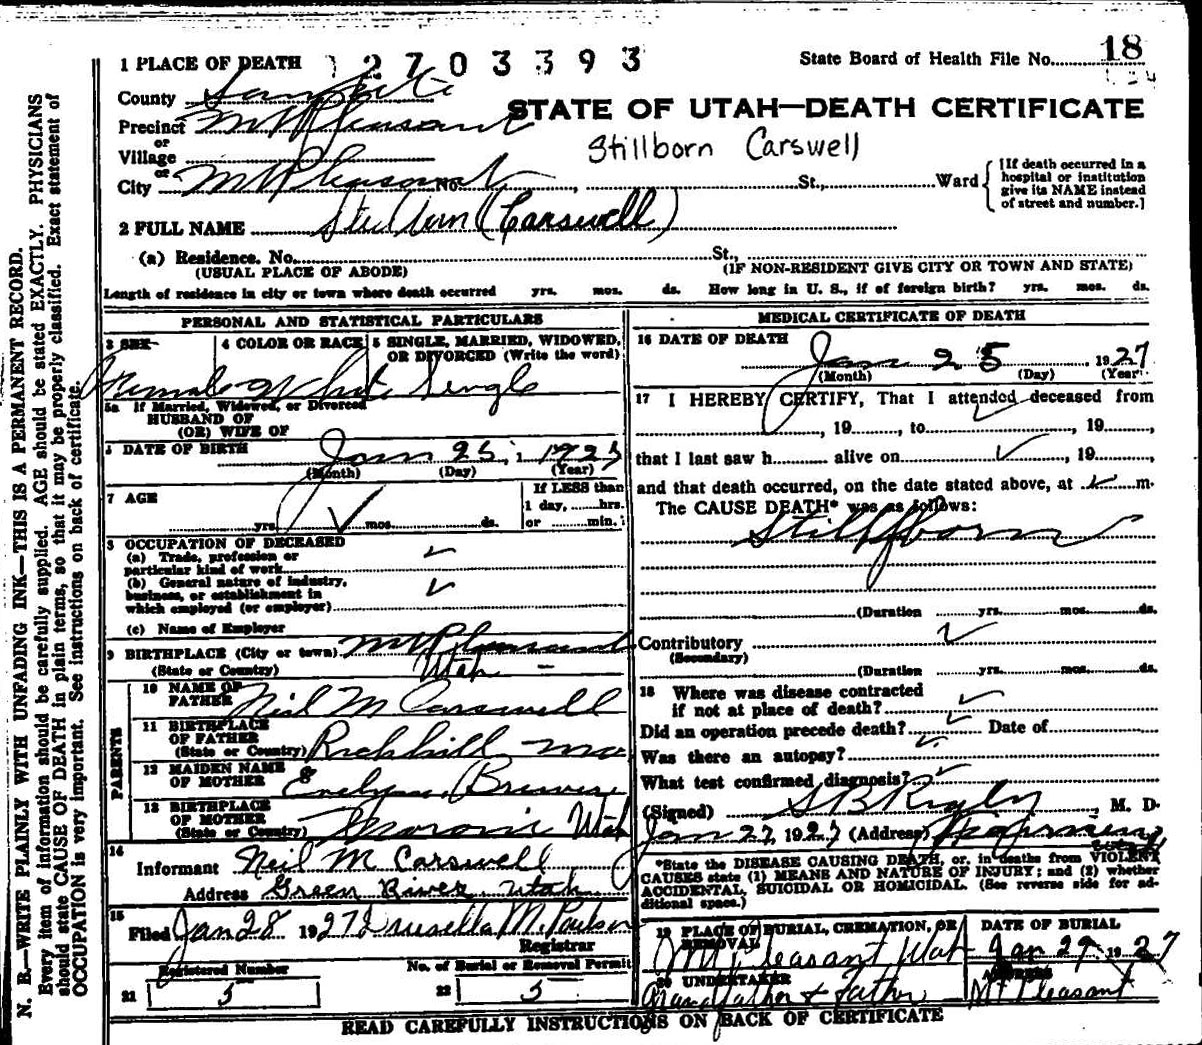 1 PLACE OF DEATH 2703393 State Board of Health File No. 18
County Sanpete
STATE OF UTAH—DEATH CERTIFICATE
Precinct Mt Pleasant
or
Village
Stillborn Carswell
or
City Mt Pleasant No. St., Ward
[If death occurred in a
hospital or institution
give its NAME instead
of street and number.]
2 FULL NAME Stillborn (Carswell)
(a) Residence. No. St.,
(USUAL PLACE OF ABODE) (IF NON-RESIDENT GIVE CITY OR TOWN AND STATE)
Length of residence in city or town where death occurred yrs. mos. ds. How long in U. S., if of foreign birth? yrs. mos. ds.
PERSONAL AND STATISTICAL PARTICULARS
3 SEX 4 COLOR OR RACE 5 SINGLE, MARRIED, WIDOWED,
OR DIVORCED (Write the word)
Female White Single
5a If Married, Widowed, or Divorced
HUSBAND OF
(OR) WIFE OF
6 DATE OF BIRTH Jan 25, 1927
(Month) (Day) (Year)
7 AGE If LESS than
1 day, hrs.
yrs. ✓ mos. ds. or min.
8 OCCUPATION OF DECEASED
(a) Trade, profession or
particular kind of work ✓
(b) General nature of industry,
business, or establishment in ✓
which employed (or employer)
(c) Name of Employer
9 BIRTHPLACE (City or town) Mt Pleasant
(State or Country) Utah —
PARENTS
10 NAME OF
FATHER Neil M Carswell
11 BIRTHPLACE
OF FATHER
(State or Country) Richhill Mo
12 MAIDEN NAME
OF MOTHER Evelyn Brewer
13 BIRTHPLACE
OF MOTHER
(State or Country) Moroni Utah
14
Informant Neil M Carswell
Address Green River Utah
15
Filed Jan 28 1927 Drusella M. Poulson
Registrar
Registered Number No. of Burial or Removal Permit
21 5 22 5
MEDICAL CERTIFICATE OF DEATH
16 DATE OF DEATH
Jan 25 1927
(Month) (Day) (Year)
17 I HEREBY CERTIFY, That I attended deceased from
, 19 , to , 19 ,
that I last saw h alive on ✓, 19 ,
and that death occurred, on the date stated above, at ✓ m.
The CAUSE DEATH* was as follows:
Stillborn
(Duration yrs. mos. ds.
Contributory ✓
(Secondary)
(Duration yrs. mos. ds.
18 Where was disease contracted
if not at place of death? ✓
Did an operation precede death? ✓ Date of
Was there an autopsy? ✓
What test confirmed diagnosis? ✓
(Signed) S B Rigby, M. D.
Jan 27, 1927 (Address)
*State the DISEASE CAUSING DEATH, or, in deaths from VIOLENT
CAUSES state (1) MEANS AND NATURE OF INJURY; and (2) whether
ACCIDENTAL, SUICIDAL OR HOMICIDAL. (See reverse side for ad-
ditional space.)
19 PLACE OF BURIAL, CREMATION, OR
REMOVAL
Mt Pleasant Utah
DATE OF BURIAL
Jan 29 1927
20 UNDERTAKER
Grandfather & Father
ADDRESS
Mt Pleasant
READ CAREFULLY INSTRUCTIONS ON BACK OF CERTIFICATE
N. B.—WRITE PLAINLY WITH UNFADING INK—THIS IS A PERMANENT RECORD.
Every item of information should be carefully supplied. AGE should be stated EXACTLY. PHYSICIANS
should state CAUSE OF DEATH in plain terms, so that it may be properly classified. Exact statement of
OCCUPATION is very important. See instructions on back of certificate.